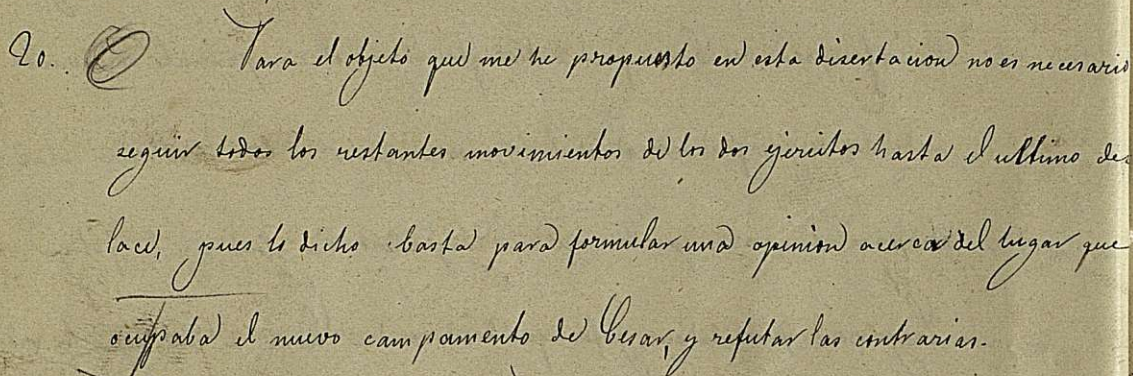 20. Para el objeto que me he propuesto en esta disertacion no es necesario
seguir todos los restantes movimientos de los dos ejercitos hasta el ultimo des
lace, pues lo dicho basta para formular una opinion acerca del lugar que
ocupaba el nuevo campamento de Cesar, y refutar las contrarias.